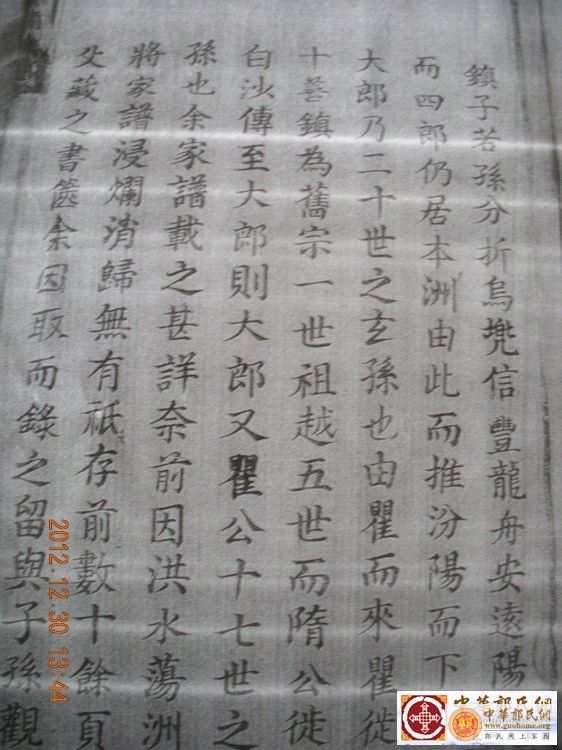 鎮子若孫分折烏堍信豐龍舟安遠陽
而四郎仍居本洲由此而推汾陽而下
大郎乃二十世之玄孫也由瞿而來瞿徙
十善鎮為舊宗一世祖越五世而隋公徙
白沙傳至大郎則大郎又瞿公十七世之
孫也余家譜載之甚詳奈前因洪水蕩洲
將家譜浸爛消歸無有祇存前數十餘頁
父藏之書篋余因取而錄之留與子孫觀
2012.12.30 13:44
中華郭氏網
中華郭氏網
www.guohome.org
郭氏網上家園